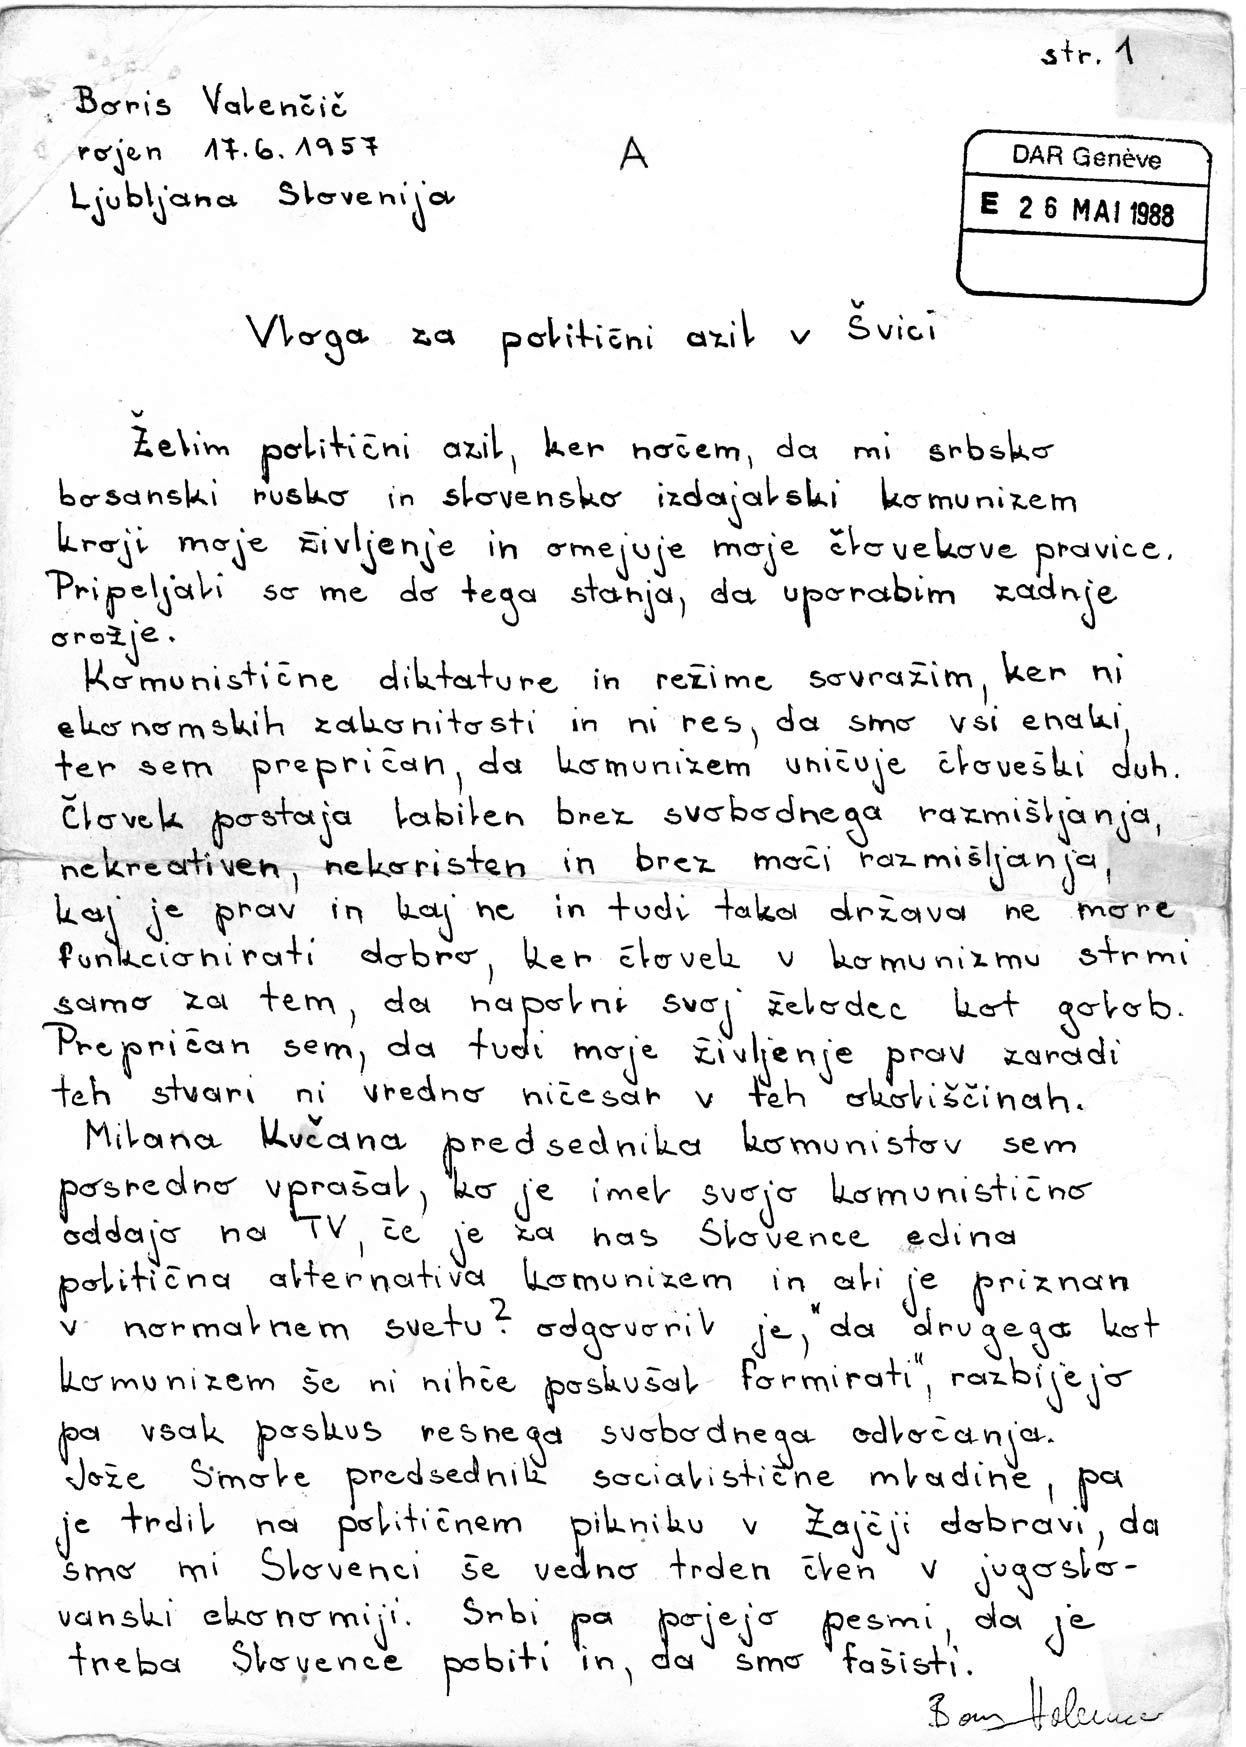 str. 1
Boris Valenčič
rojen 17.6.1957
Ljubljana Slovenija
A
DAR Genève
E 26 MAI 1988
Vloga za politični azil v Švici
Želim politični azil, ker nočem, da mi srbsko
bosanski rusko in slovensko izdajalski komunizem
kroji moje življenje in omejuje moje človekove pravice.
Pripeljali so me do tega stanja, da uporabim zadnje
orožje.
Komunistične diktature in režime sovražim, ker ni
ekonomskih zakonitosti in ni res, da smo vsi enaki,
ter sem prepričan, da komunizem uničuje človeški duh.
Človek postaja labilen brez svobodnega razmišljanja,
nekreativen, nekoristen in brez moči razmišljanja,
kaj je prav in kaj ne in tudi taka država ne more
funkcionirati dobro, ker človek v komunizmu strmi
samo za tem, da napolni svoj želodec kot golob.
Prepričan sem, da tudi moje življenje prav zaradi
teh stvari ni vredno ničesar v teh okoliščinah.
Milana Kučana predsednika komunistov sem
posredno vprašal, ko je imel svojo komunistično
oddajo na TV, če je za nas Slovence edina
politična alternativa komunizem in ali je priznan
v normalnem svetu? odgovoril je, "da drugega kot
komunizem še ni nihče poskušal formirati", razbijejo
pa vsak poskus resnega svobodnega odločanja.
Jože Smole predsednik socialistične mladine, pa
je trdil na političnem pikniku v Zajčji dobravi, da
smo mi Slovenci še vedno trden člen v jugoslo-
vanski ekonomiji. Srbi pa pojejo pesmi, da je
treba Slovence pobiti in, da smo fašisti.